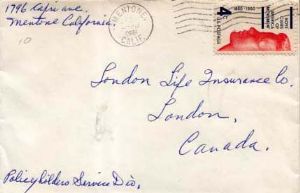 1796 Capri ave.
Mentone California.
10
MENTONE
CALIF.
4¢
1860-1960
London Life Insurance Co.
London,
Canada.
Policyholders Service Div.